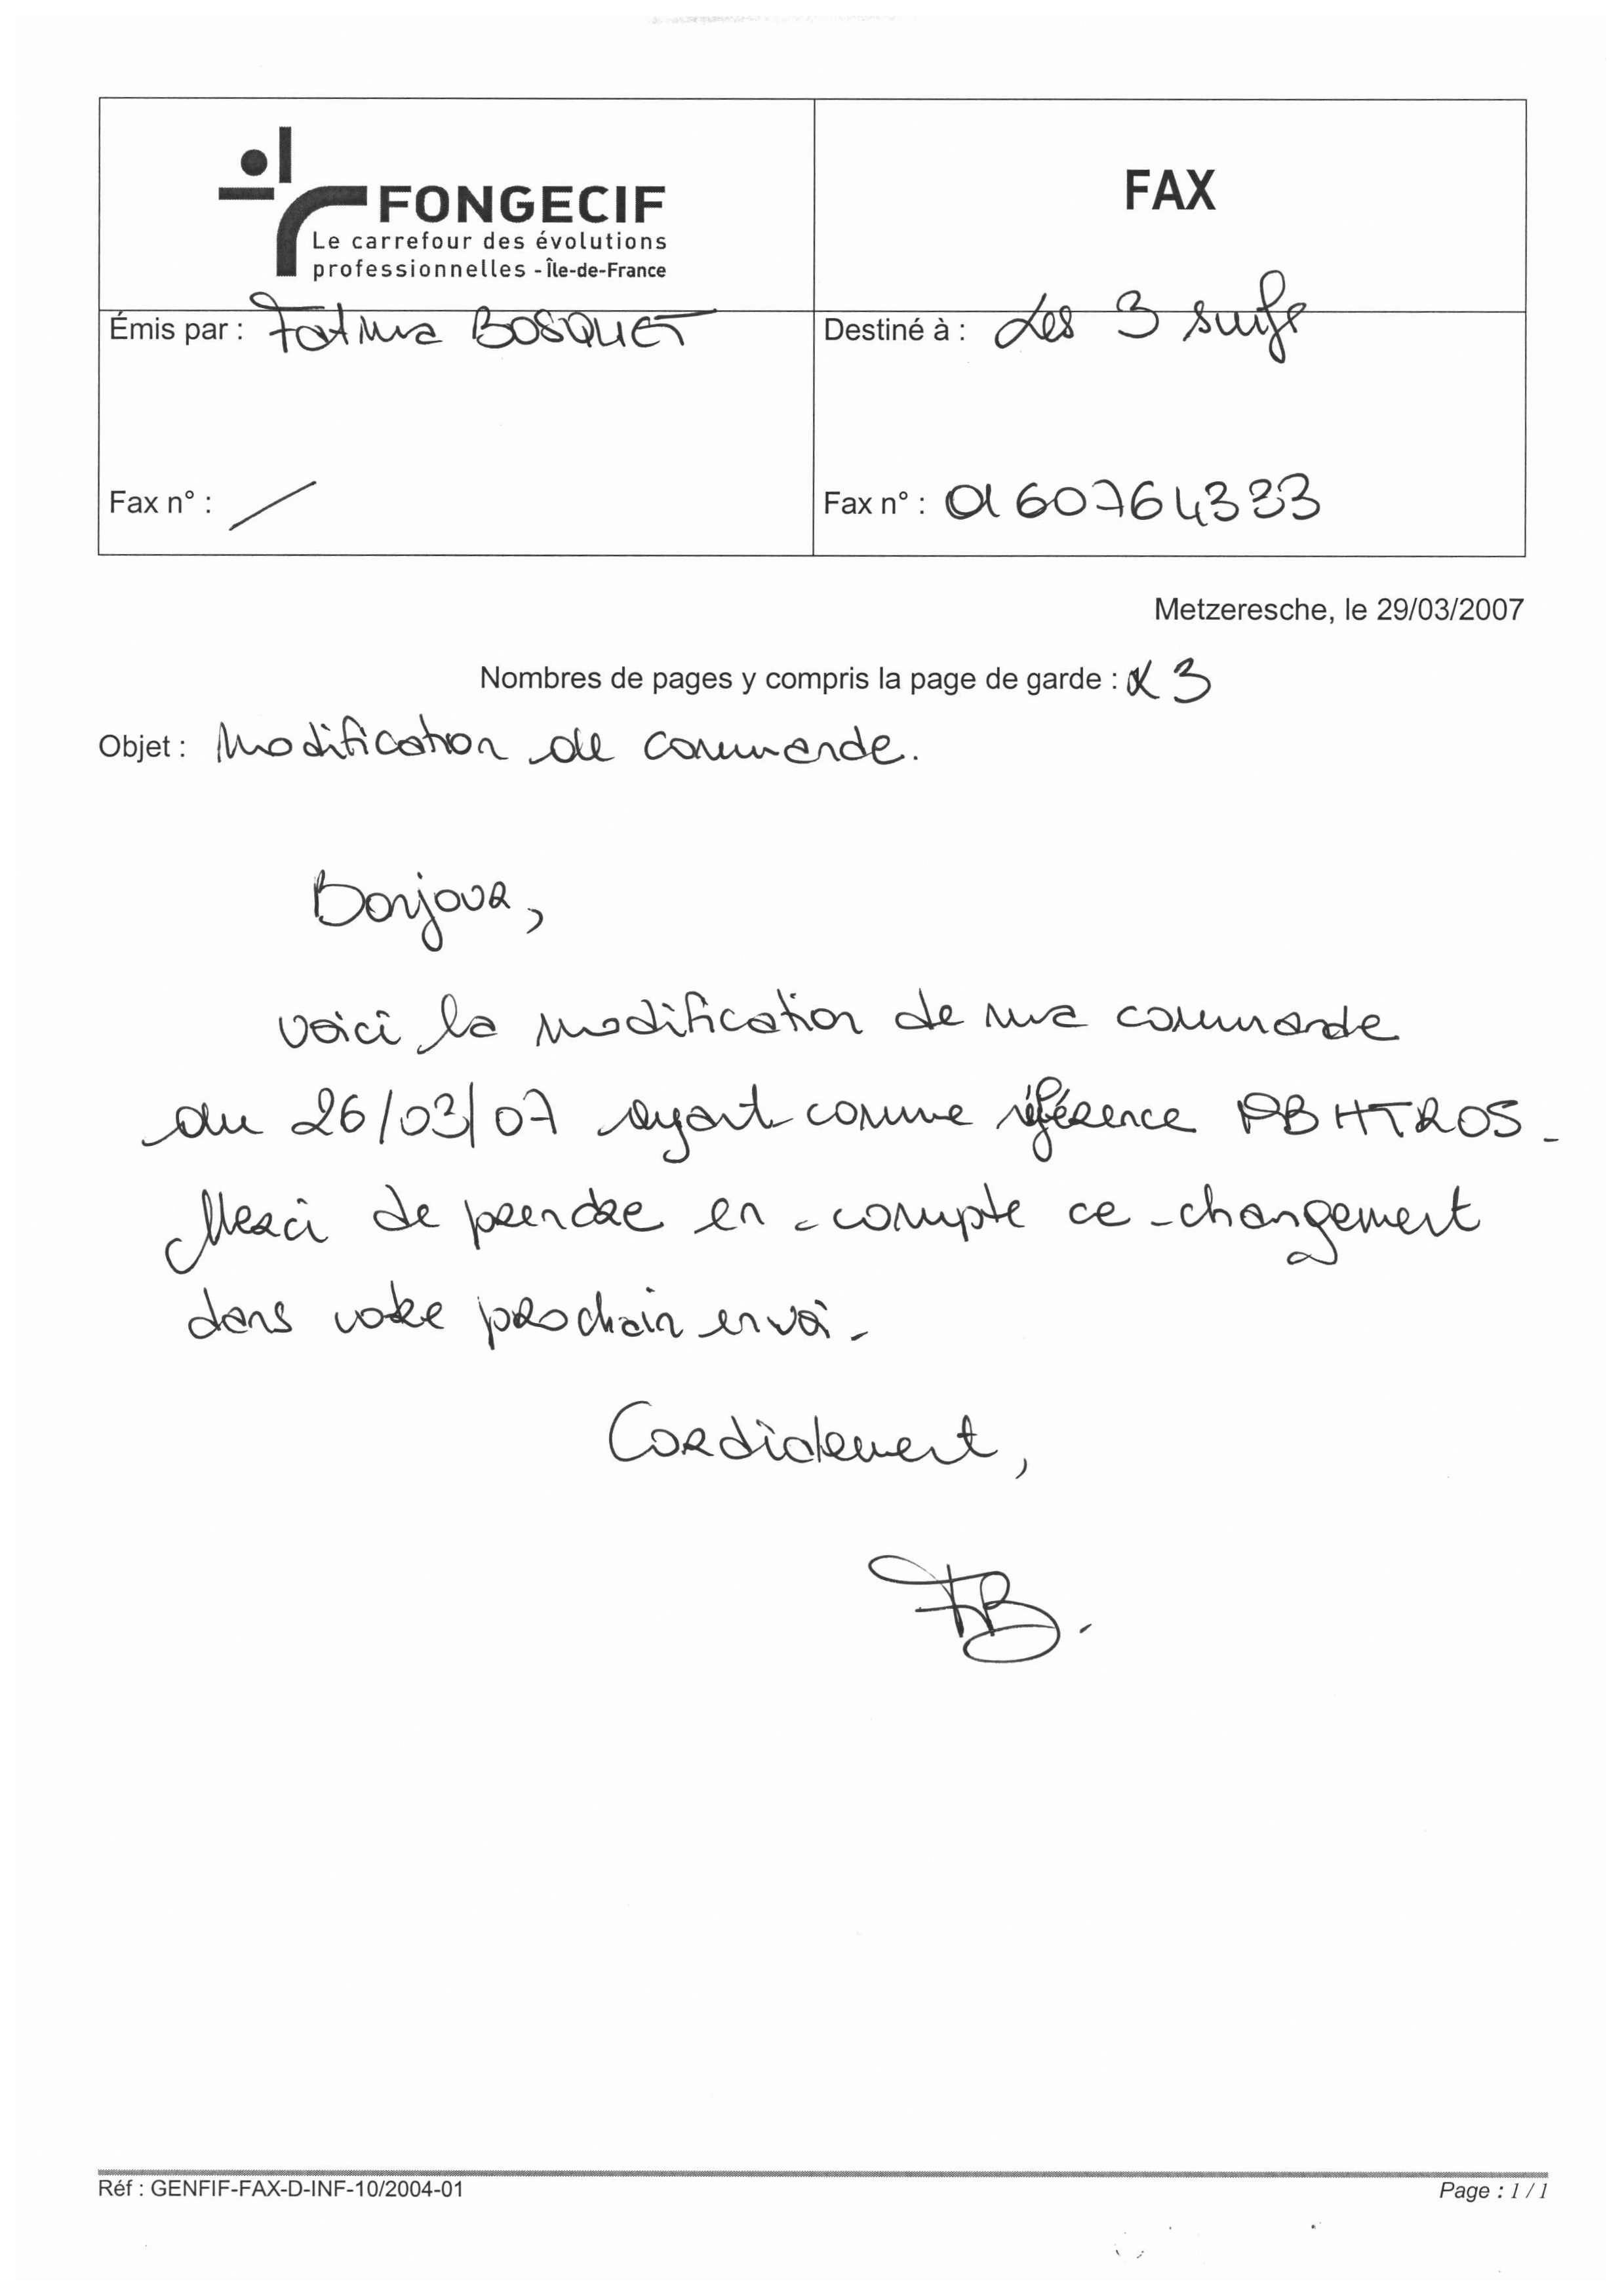 FONGECIF
Le carrefour des évolutions
professionnelles - Île-de-France
FAX
Émis par : Fatma BOSQUET
Destiné à : Les 3 suifs
Fax n° : /
Fax n° : 0160764333
Metzeresche, le 29/03/2007
Nombres de pages y compris la page de garde : 3
Objet : Modification de commande.
Bonjour,
voici la modification de ma commande
du 26/03/07 ayant comme référence PBHTROS.
Merci de prendre en compte ce changement
dans votre prochain envoi.
Cordialement,
FB.
Réf : GENFIF-FAX-D-INF-10/2004-01
Page : 1 / 1